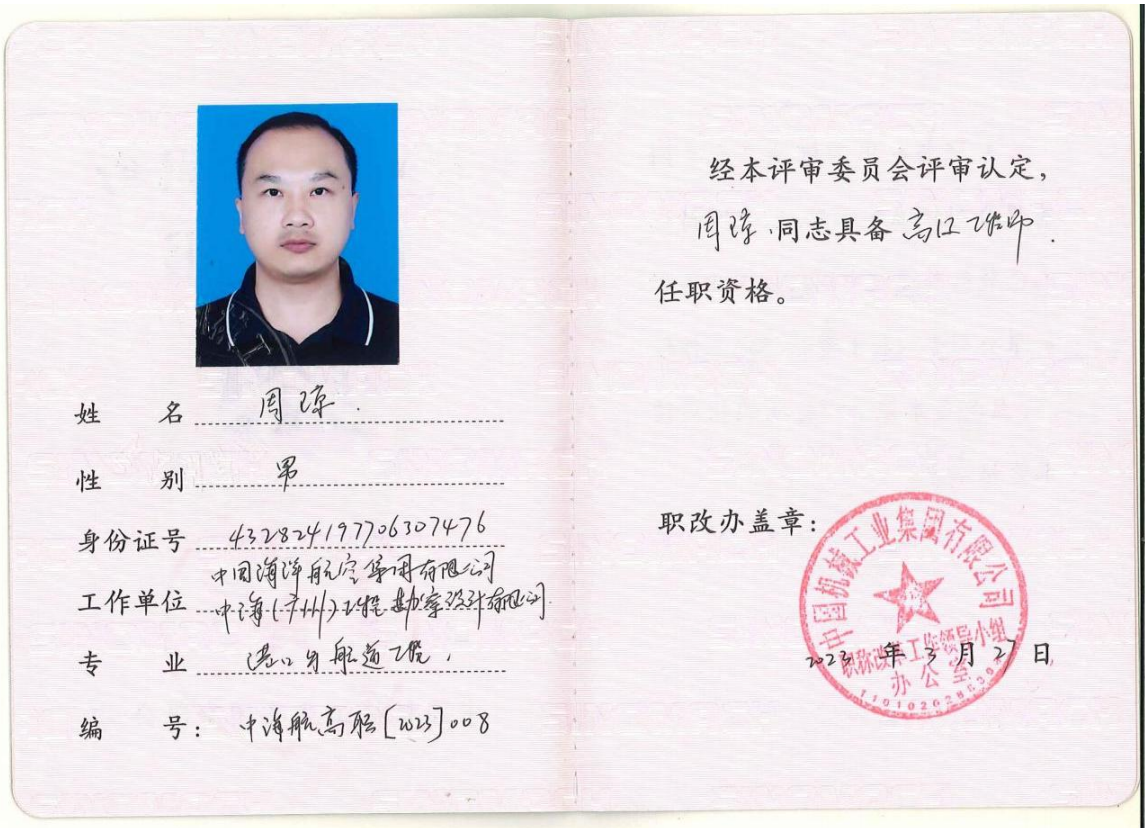 姓 名 周琼
性 别 男
身份证号 432824197706307476
中国海洋航空集团有限公司
工作单位 中海(广州)工程勘察设计有限公司
专 业 港口与航道工程
编 号: 中海航高职[2023]008
经本评审委员会评审认定,
周琼 同志具备 高级工程师
任职资格。
职改办盖章:
中国机械工业集团有限公司
职称改革工作领导小组
办公室
2023 年 3 月 27 日